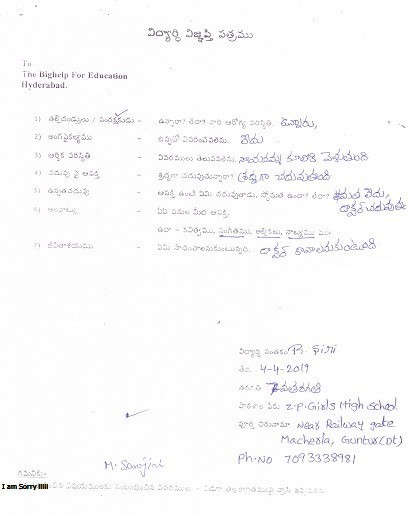 విద్యార్థి విజ్ఞప్తి పత్రము
To
The Bighelp For Education
Hyderabad.
1) తల్లిదండ్రులు / సంరక్షకుడు - ఉన్నారా? లేదా? వారి ఆరోగ్య పరిస్థితి. ఉన్నారు,
2) అంగవైకల్యము - ఉన్నచో వివరించవలెను. లేదు
3) ఆర్థిక పరిస్థితి - వివరములు తెలుపవలెను. నాయనమ్మ కూలికి వెళుతుంది
4) చదువు పై ఆసక్తి - శ్రద్ధగా చదువుచున్నారా? శ్రద్ధగా చదువుతుంది
5) ఉన్నతచదువు - ఆసక్తి ఉంటే ఏమి చదువుతాడు, స్తోమత ఉందా? లేదా? స్తోమత లేదు,
డాక్టర్ చదువుతా
6) అలవాట్లు - ఏఏ పనుల మీద ఆసక్తి.
ఉదా - కవిత్వము, సంగీతము, ఆటికలు, నాట్యము
7) జీవితాశయము - ఏమి సాధించాలనుకుంటున్నారు. డాక్టర్ కావాలనుకుంటుంది
విద్యార్థి సంతకం P. Siri
తేది. 4-4-2019
తరగతి 7వ తరగతి
పాఠశాల పేరు Z.P. Girls High school
పూర్తి చిరునామా Near Railway gate
Macherla, Guntur(DT)
Ph.No 7093338981
M. Sarojini
గమనిక:-
I am Sorry !!!!!